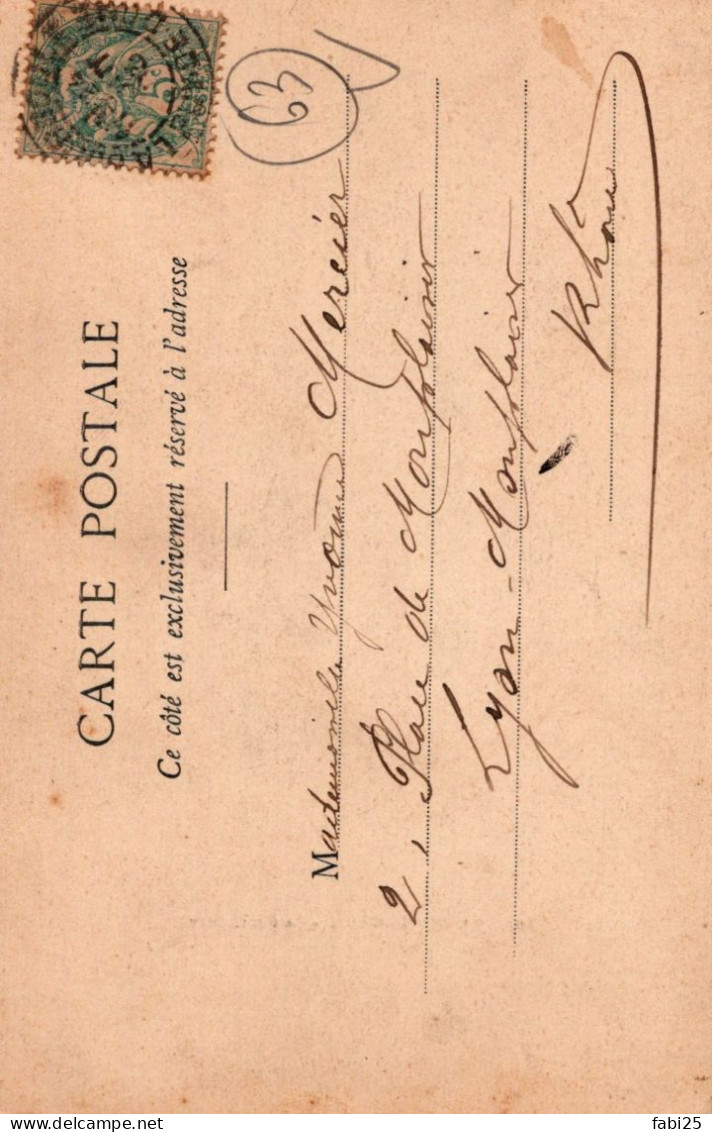 63
CARTE POSTALE
Ce côté est exclusivement réservé à l'adresse
Mademoiselle Yvonne Mercier
2, Place de Monplaisir
Lyon-Monplaisir
Rhône
delcampe.net
fabi25